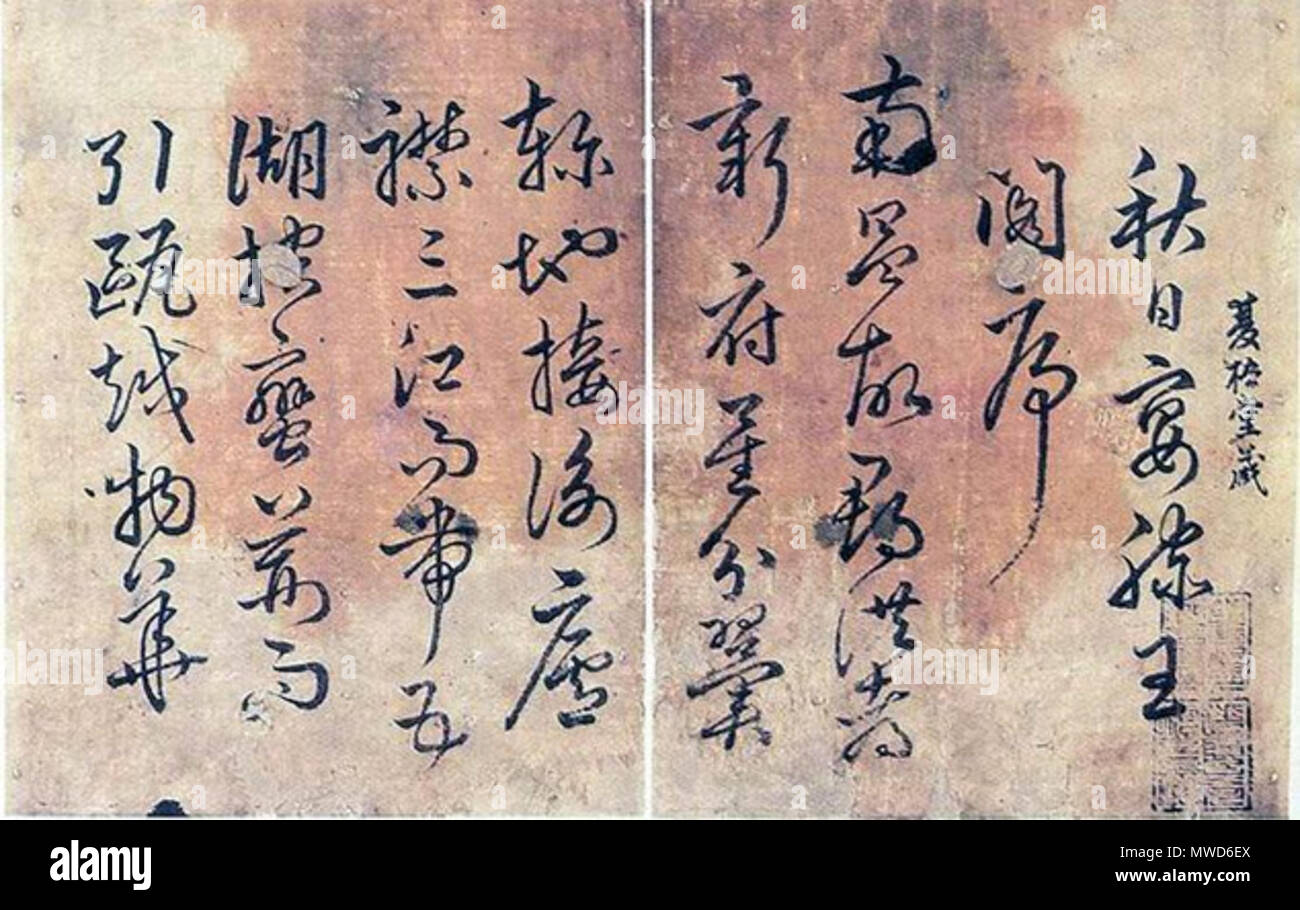 堂藏
秋日宴滕王
閣序
南昌故郡洪都
新府星分翼
軫地接衡廬
襟三江而帶五
湖控蠻荊而
引甌越物華
alamy
Image ID: MWD6EX
www.alamy.com